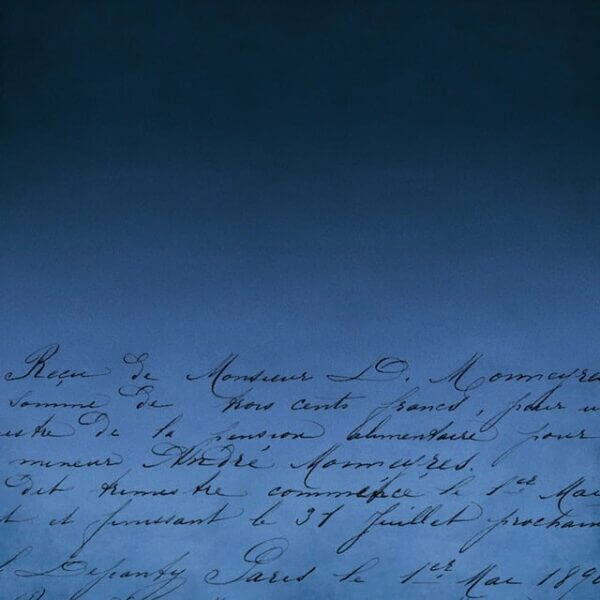 Reçu de Monsieur D. Monneyre
somme de trois cents francs, pour u
estre de la pension alimentaire pour
mineur André Monneyres.
Dit trimestre commence le 1er Mai
t et finissant le 31 Juillet prochain
Paris le 1er Mai 1890